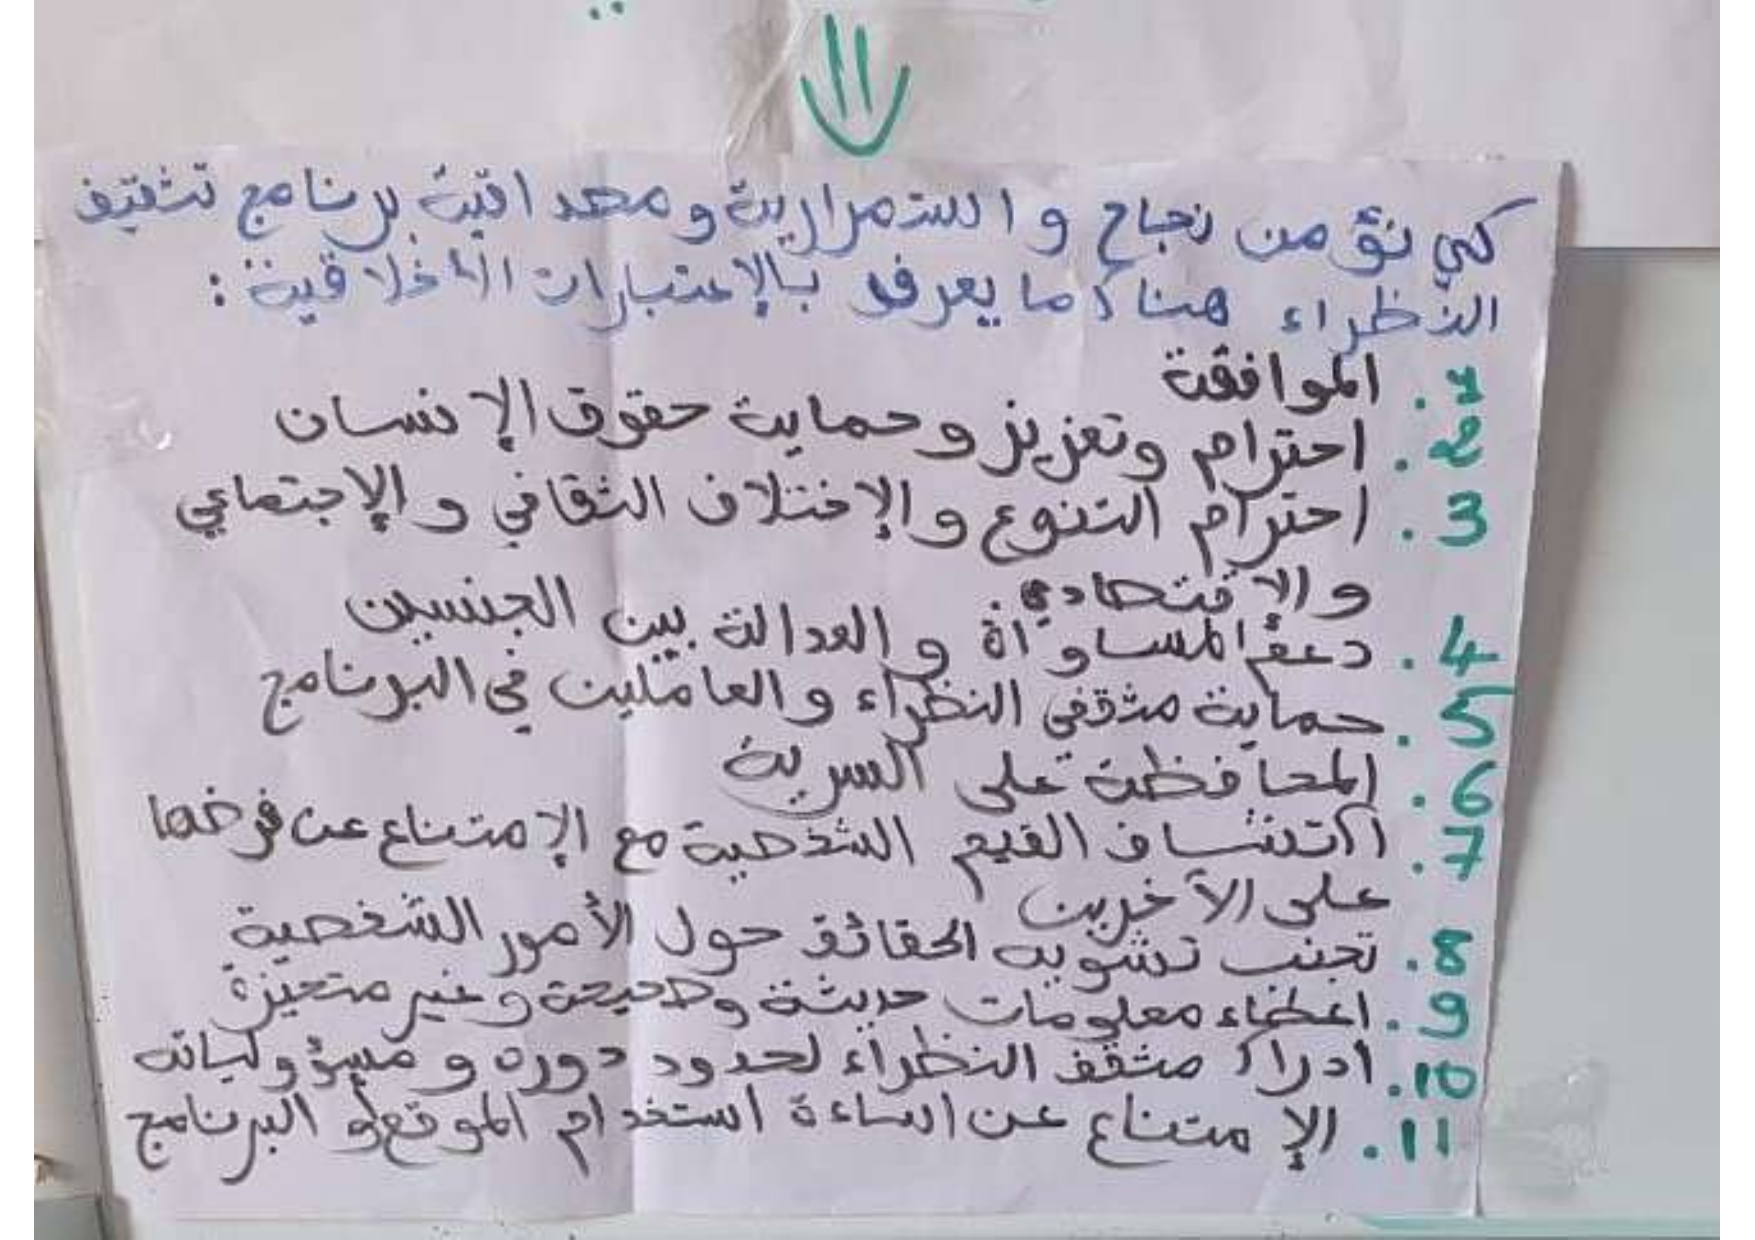 كي نؤمن نجاح و استمرارية و مصداقية برنامج تثقيف
النظراء هناك ما يعرف بالإعتبارات الأخلاقية:
1. الموافقة
2. احترام وتعزيز وحماية حقوق الإنسان
3. احترام التنوع والإختلاف الثقافي والإجتماعي
والإقتصادي.
4. دعم المساواة والعدالة بين الجنسين
5. حماية مثقفي النظراء والعاملين في البرنامج
6. المحافظة على السرية
7. اكتشاف القيم الشخصية مع الإمتناع عن فرضها
على الآخرين
8. تجنب تشويه الحقائق حول الأمور الشخصية
9. اعطاء معلومات حديثة وصحيحة وغير متحيزة
10. ادراك مثقف النظراء لحدود دوره و مسؤولياته
11. الإمتناع عن اساءة استخدام الموقع او البرنامج